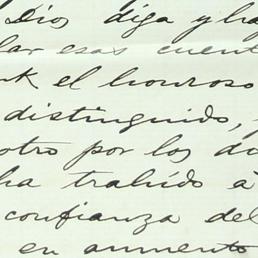 Dios diga y ha
lar esas cuent
el honroso
distinguido,
otro por los do
ha trahido á
confianza del
en aumento